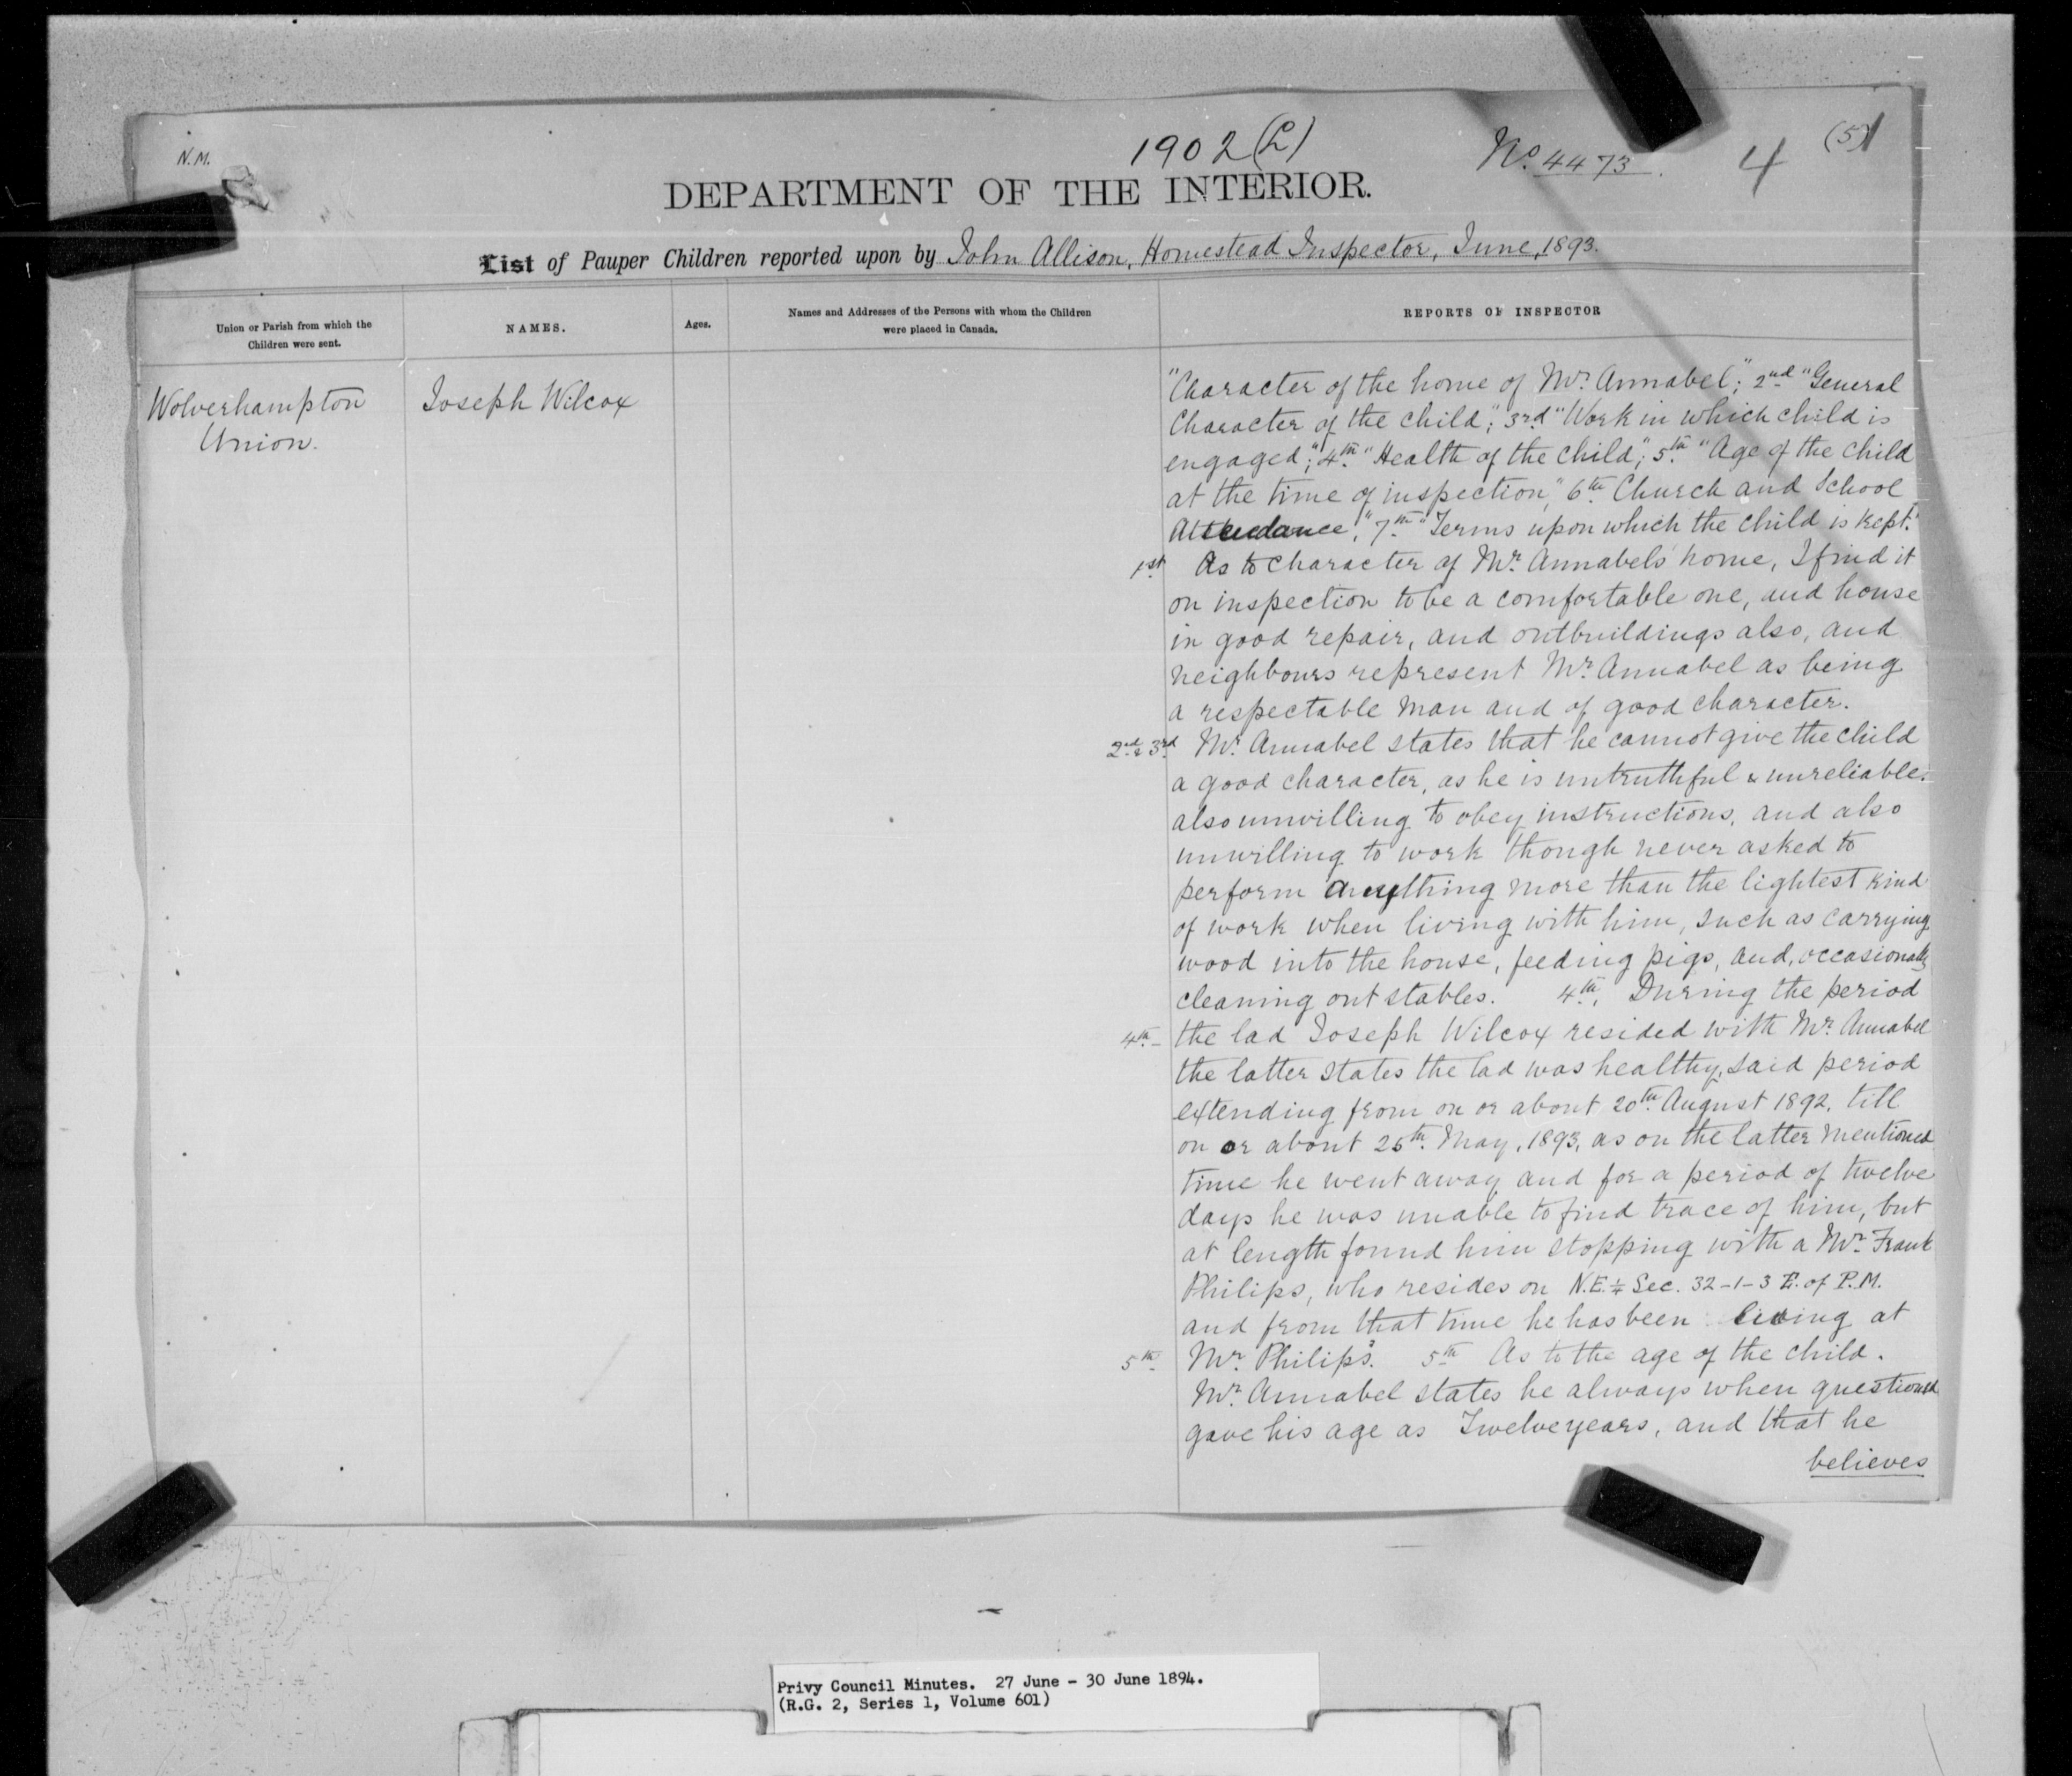 N.M.
1902 (L)
No. 4473.
4
(5)
DEPARTMENT OF THE INTERIOR.
List of Pauper Children reported upon by John Allison, Homestead Inspector, June, 1893.
Union or Parish from which the
Children were sent.
NAMES.
Ages.
Names and Addresses of the Persons with whom the Children
were placed in Canada.
REPORTS OF INSPECTOR
Wolverhampton
Union.
Joseph Wilcox
"Character of the home of Mr. Annabel"; 2nd "General
Character of the child"; 3rd "Work in which child is
engaged"; 4th "Health of the child"; 5th "Age of the child
at the time of inspection", 6th Church and School
Attendance", 7th "Terms upon which the child is kept."
1st As to character of Mr. Annabel's home, I find it
on inspection to be a comfortable one, and house
in good repair, and outbuildings also, and
neighbours represent Mr. Annabel as being
a respectable man and of good character.
2nd & 3rd Mr. Annabel states that he cannot give the child
a good character, as he is untruthful & unreliable.
also unwilling to obey instructions, and also
unwilling to work though never asked to
perform anything more than the lightest kind
of work when living with him, such as carrying
wood into the house, feeding pigs, and, occasionally
cleaning out stables. 4th. During the period
4th- the lad Joseph Wilcox resided with Mr. Annabel
the latter states the lad was healthy, said period
extending from on or about 20th August 1892, till
on or about 25th May, 1893, as on the latter mentioned
time he went away and for a period of twelve
days he was unable to find trace of him, but
at length found him stopping with a Mr. Frank
Philips, who resides on N.E. ¼ Sec. 32-1-3 E. of P.M.
and from that time he has been living at
5th Mr. Philips'. 5th As to the age of the child.
Mr. Annabel states he always when questioned
gave his age as Twelve years, and that he
believes
Privy Council Minutes. 27 June - 30 June 1894.
(R.G. 2, Series 1, Volume 601)